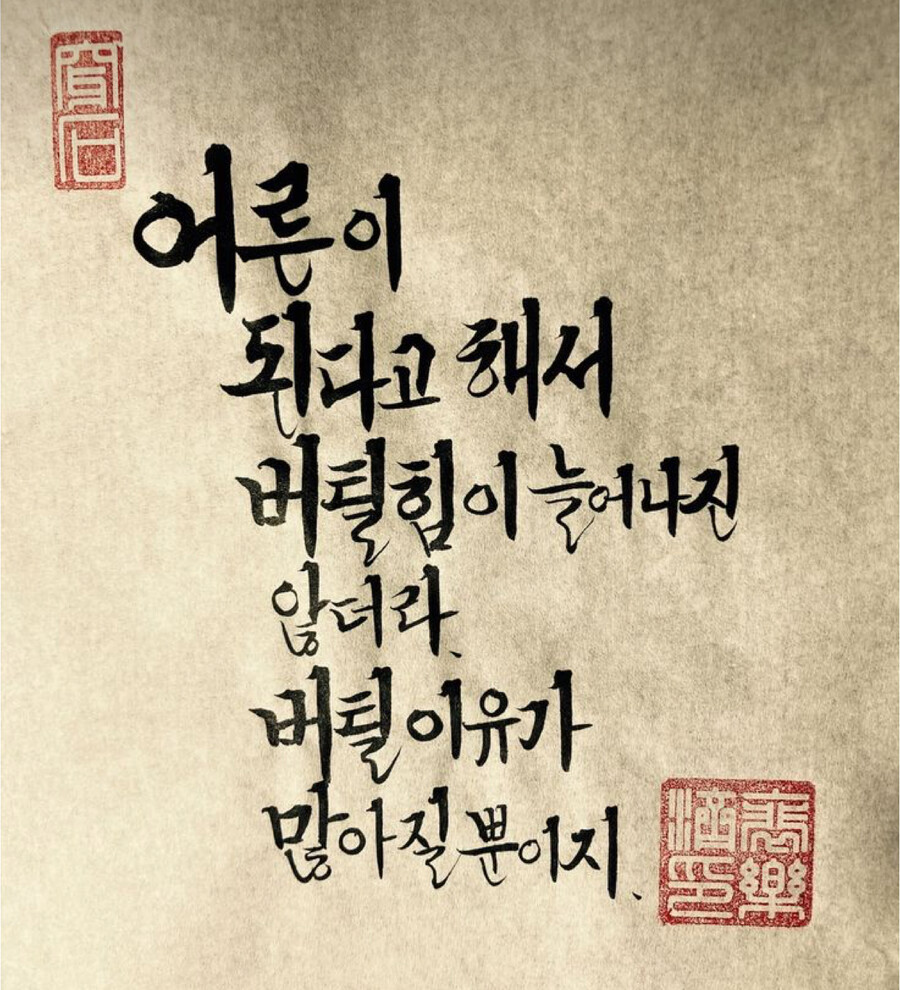 어른이
된다고 해서
버틸 힘이 늘어나진
않더라.
버틸 이유가
많아질 뿐이지.